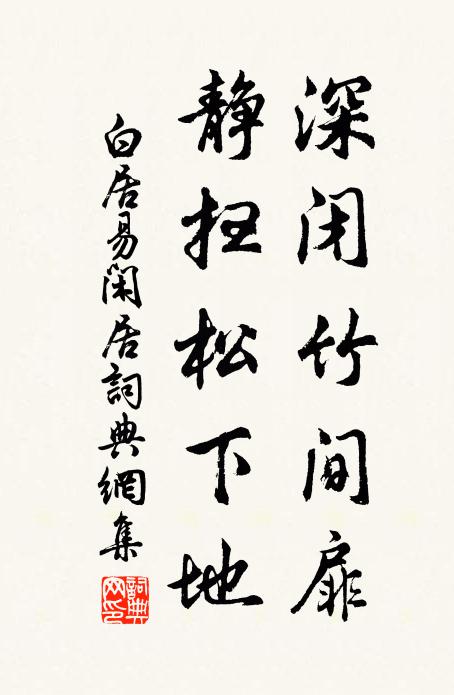 深闭竹间扉
静扫松下地
白居易闲居詞典網集
詞典网印